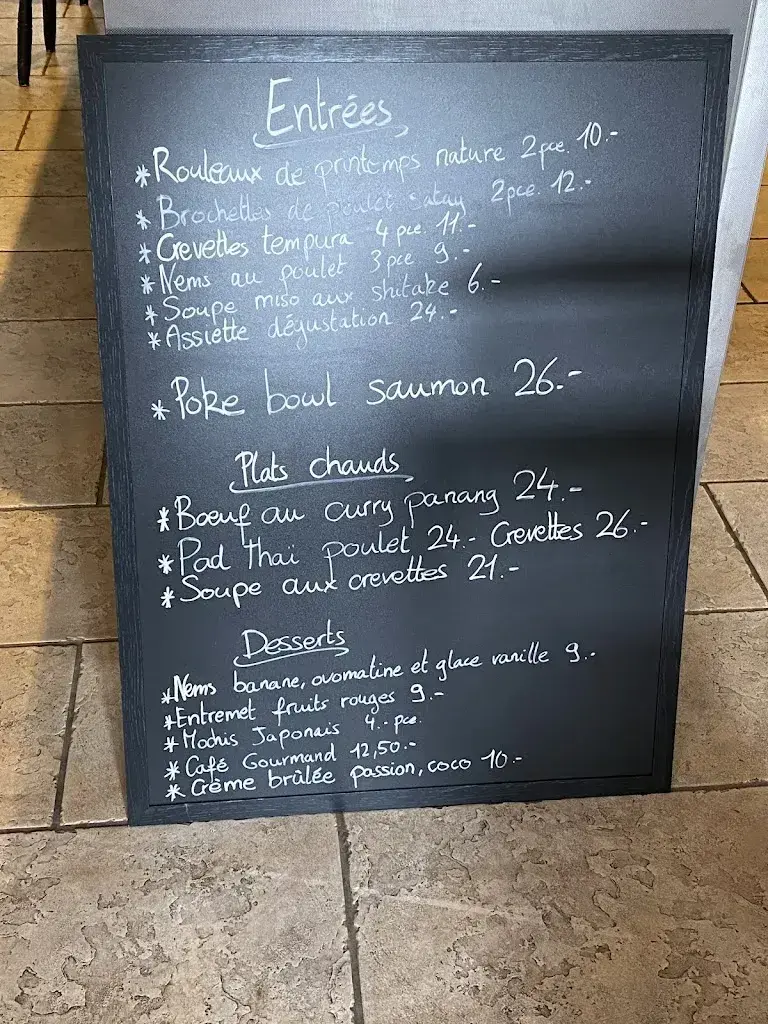 Entrées
* Rouleaux de printemps nature 2 pce. 10.-
* Brochettes de poulet satay 2 pce. 12.-
* Crevettes tempura 4 pce. 11.-
* Nems au poulet 3 pce 9.-
* Soupe miso aux shitake 6.-
* Assiette dégustation 24.-
* Poke bowl saumon 26.-
Plats chauds
* Bœuf au curry panang 24.-
* Pad thaï poulet 24.- Crevettes 26.-
* Soupe aux crevettes 21.-
Desserts
* Nems banane, ovomatine et glace vanille 9.-
* Entremet fruits rouges 9.-
* Mochis Japonais 4.- pce.
* Café Gourmand 12,50.-
* Crème brûlée passion, coco 10.-